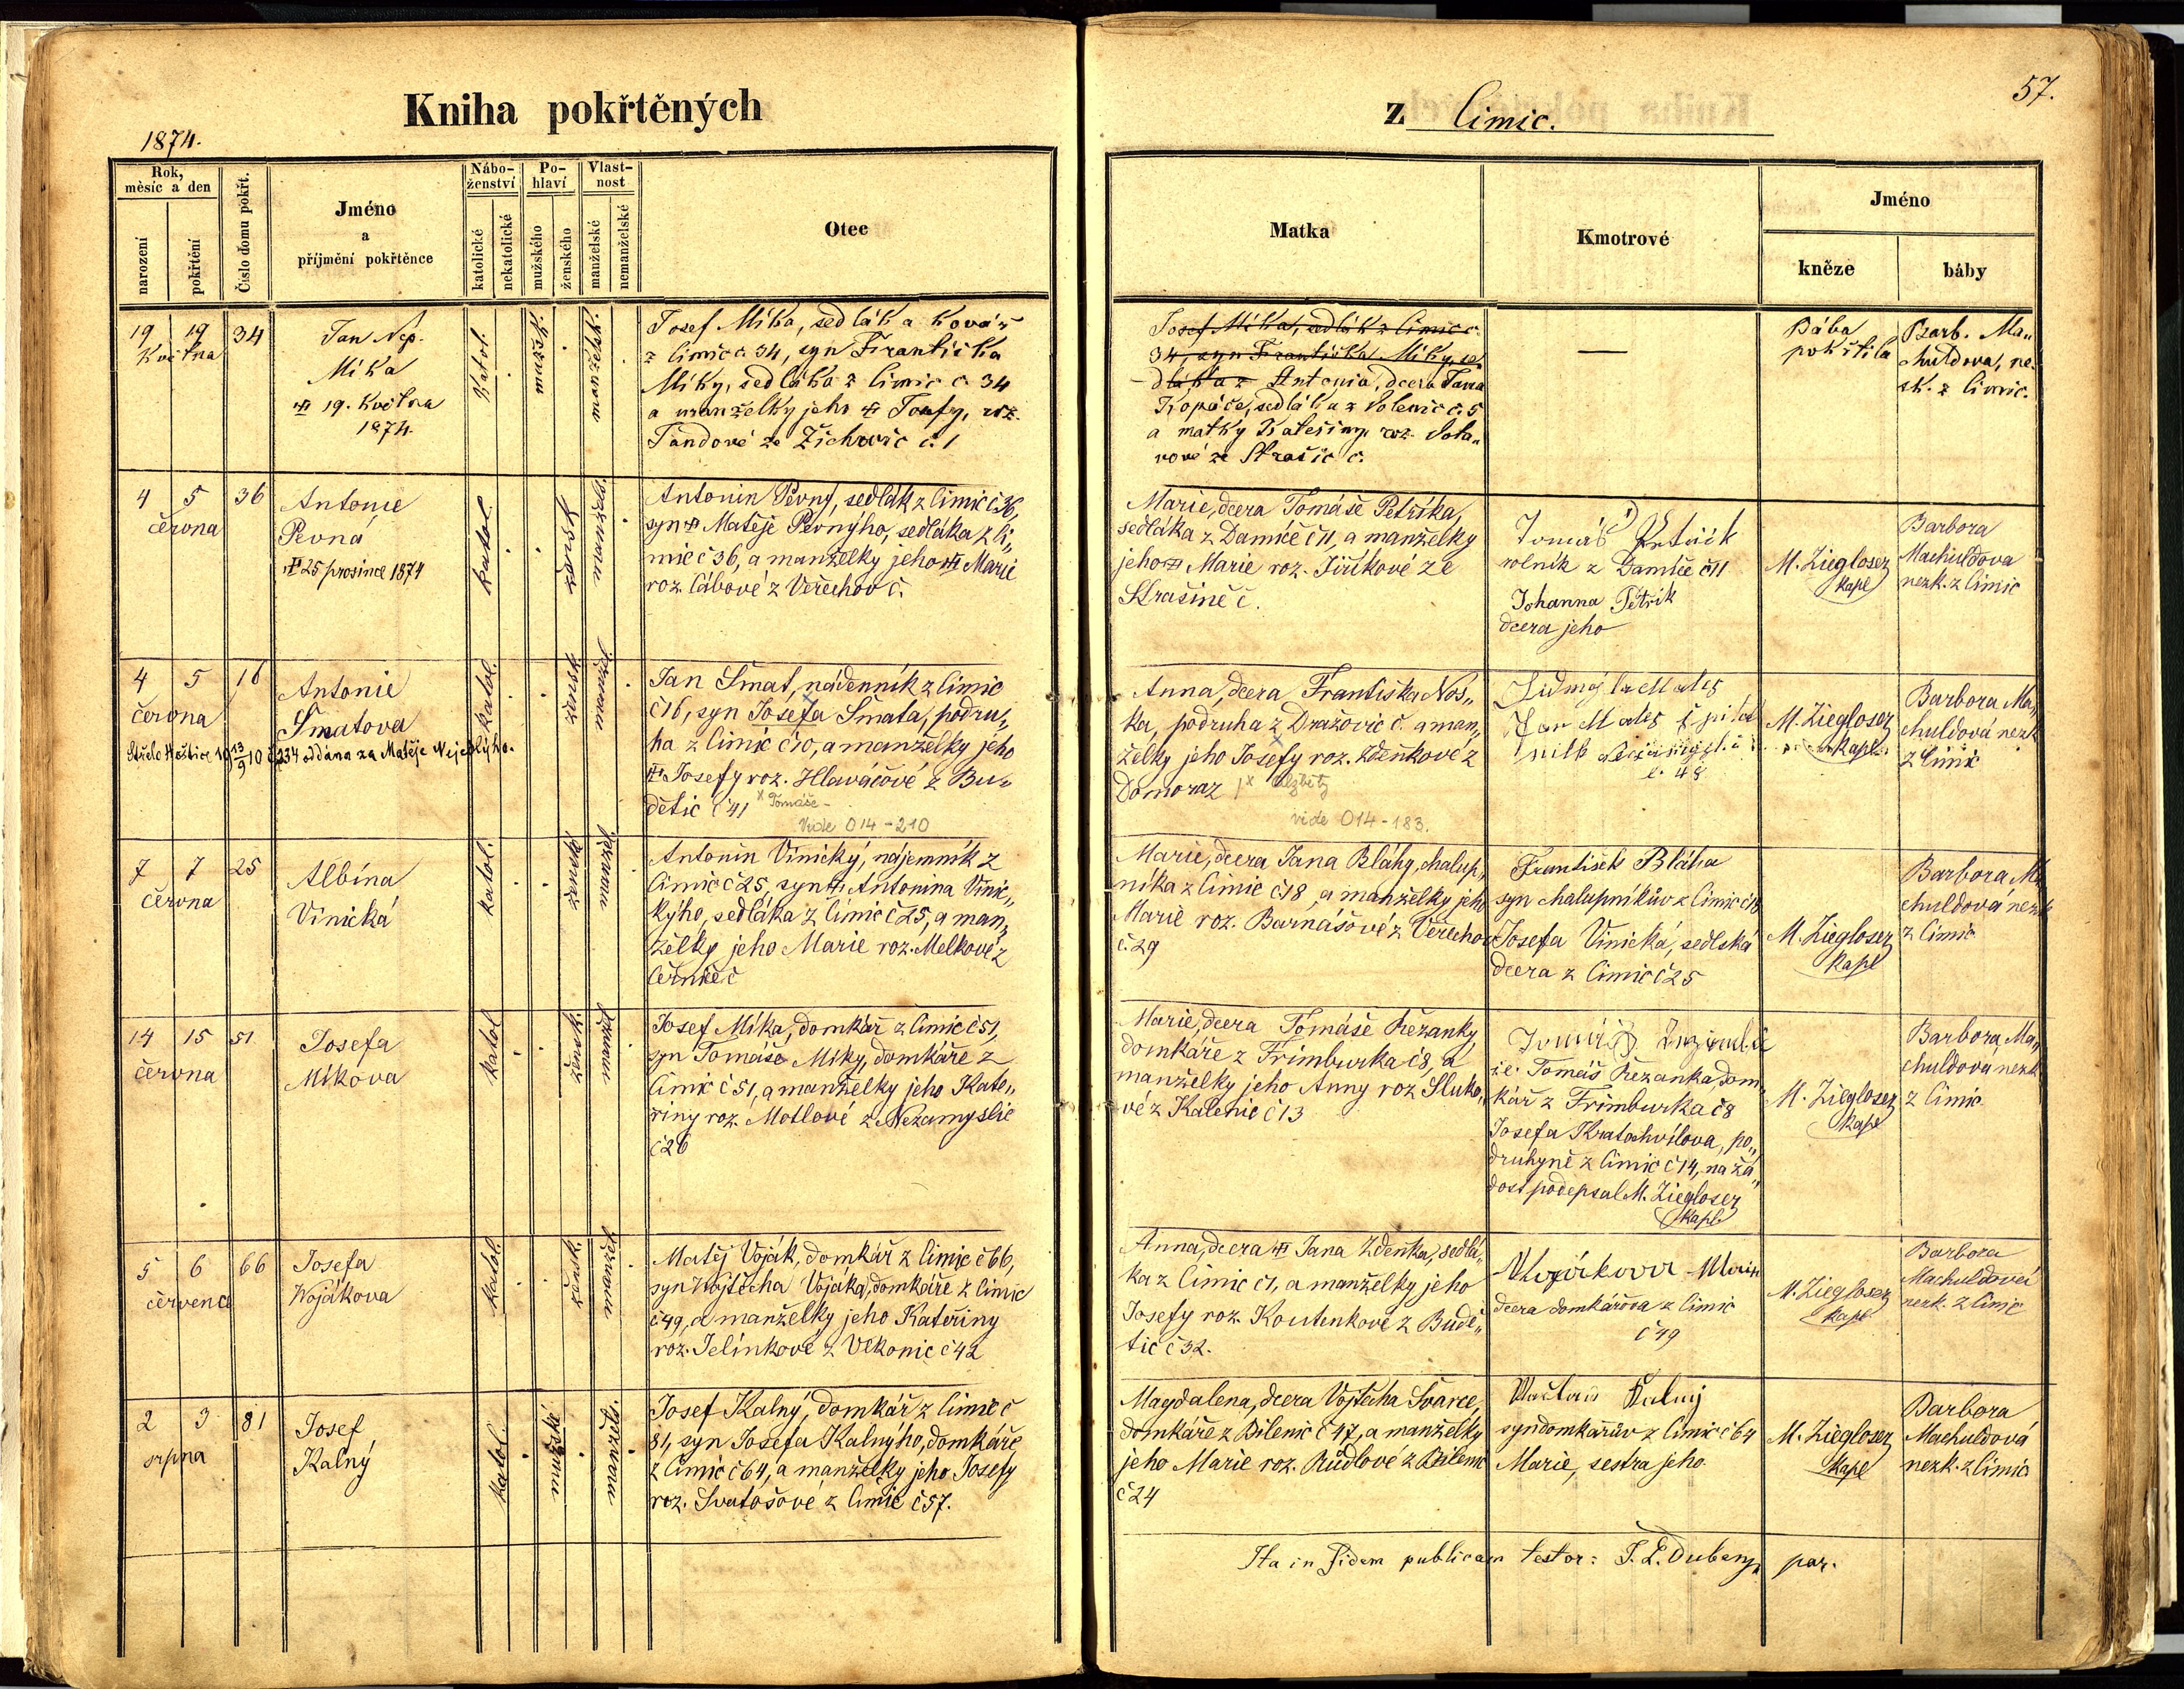 Kniha pokřtěných
1874.
Rok,
měsíc a den
narození
pokřtění
Číslo domu pokřt.
Jméno
a
příjmění pokřtěnce
Nábo-
ženství
katolické
nekatolické
Po-
hlaví
mužského
ženského
Vlast-
nost
manželské
nemanželské
Otec
19 19 34
Května
Jan Nep.
Míka
19. Května
1874.
Katol.
mužsk.
manželský
Josef Míka, sedlák a kovář
z Čimic č 34, syn Františka
Míky, sedláka z Čimic č 34
a manželky jeho Josefy, roz.
Jandové ze Žichovic č. 1
4 5 36
června
Antonie
Pevná
25 prosince 1874
katol.
Antonín Pevný, sedlák z Čimic č 36,
syn Matěje Pevnýho, sedláka z Či„
mic č 36, a manželky jeho Marie
roz. Cábové z Veřechov č.
4 5 16
června
Antonie
Šmatova
oddána za Matěje Nejedlýho.
katol.
žensk.
Jan Šmat, nádenník z Čimic
č 16, syn Josefa Šmata, podru„
ha z Čimic č 10, a manželky jeho
Josefy roz. Hlaváčové z Bu„
dětic č 41 x Tomáše -
Vide 014-210
7 7 25
června
Albína
Vinická
katol.
žensk.
Antonín Vinický, nájemník z
Čimic č 25, syn Antonína Vinic„
kýho, sedláka z Čimic č 25, a man„
želky jeho Marie roz. Melkové z
Černíče č
14 15 51
června
Josefa
Míkova
katol
žensk.
Josef Míka, domkář z Čimic č 51,
syn Tomáše Míky, domkáře z
Čimic č 51, a manželky jeho Kate„
řiny roz. Motlové z Nezamyslic
č 26
5 6 66
července
Josefa
Vojákova
katol.
žensk.
Matěj Voják, domkář z Čimic č 66,
syn Vojtěcha Vojáka, domkáře z Čimic
č 49, a manželky jeho Kateřiny
roz. Jelínkové z Vlkonic č 42
2 3 81
srpna
Josef
Kalný
katol.
mužské
Josef Kalný, domkář z Čimic č
81, syn Josefa Kalnýho, domkáře
z Čimic č 64, a manželky jeho Josefy
roz. Svatošové z Čimic č 57.
57.
z Čimic.
Matka
Kmotrové
Jméno
kněze
báby
Josef Míka, sedlák z Čimic č.
34, syn Františka Míky, se
dláka z Antonia, dcera Jana
Kopáče, sedláka z Volenic č. 5
a matky Kateřiny roz.
nové ze Strašic č.
—
Bába
pokřtila
Barb. Ma„
chuldova, ne
zk. z Čimic.
Marie, dcera Tomáše Petříka,
sedláka z Damíče č 11, a manželky
jeho Marie roz. Jiříkové ze
Strašině č.
Tomáš Petřík
rolník z Damíče č 11
Johanna Petřík
dcera jeho
M. Ziegloser
kapl
Barbora
Machuldova
nezk. z Čimic
Anna, dcera Františka Nos„
ka, podruha z Dražovic č. a man„
želky jeho Josefy roz. Zdeňkové z
Domoraz x Alzběty
vide 014-183.
Jan Mates
č. 48
M. Ziegloser
kapl.
Barbora Ma„
chuldová nezk
z Čimic
Marie, dcera Jana Bláhy, chalup„
níka z Čimic č 18, a manželky jeho
Marie roz. Barnášové z Veřechov
č. 29
František Bláha
syn chalupníkův z Čimic č 18
Josefa Vinická, sedlská
dcera z Čimic č 25
M. Ziegloser
kapl
Barbora Ma
chuldová nezk
z Čimic
Marie, dcera Tomáše Řežanky,
domkáře z Frimburka č 8, a
manželky jeho Anny roz Sluko„
vé z Kalenic č 13
Tomáš
t.j. Tomáš Řežanka, dom
kář z Frimburka č 8
Josefa Kratochvílova, po„
druhyně z Čimic č 14, na žá„
dost podepsal M. Ziegloser
kapl
M. Ziegloser
kapl
Barbora Ma„
chuldova nezk
z Čimic
Anna, dcera Jana Zdeňka, sedlá„
ka z Čimic č 1, a manželky jeho
Josefy roz. Koutenkové z Budě„
tic č 32.
Vojáková Marie
dcera domkářova z Čimic
č 49
M. Ziegloser
kapl
Barbora
Machuldová
nezk. z Čimic
Magdalena, dcera Vojtěcha Švarce,
domkáře z Bilenic č 47, a manželky
jeho Marie roz. Rudlové z Bilenic
č 24
Václav Kalný
syn domkářův z Čimic č 64
Marie, sestra jeho
M. Ziegloser
kapl
Barbora
Machuldová
nezk. z Čimic
Ita in fidem publicam testor: J. L. Dubeny par.